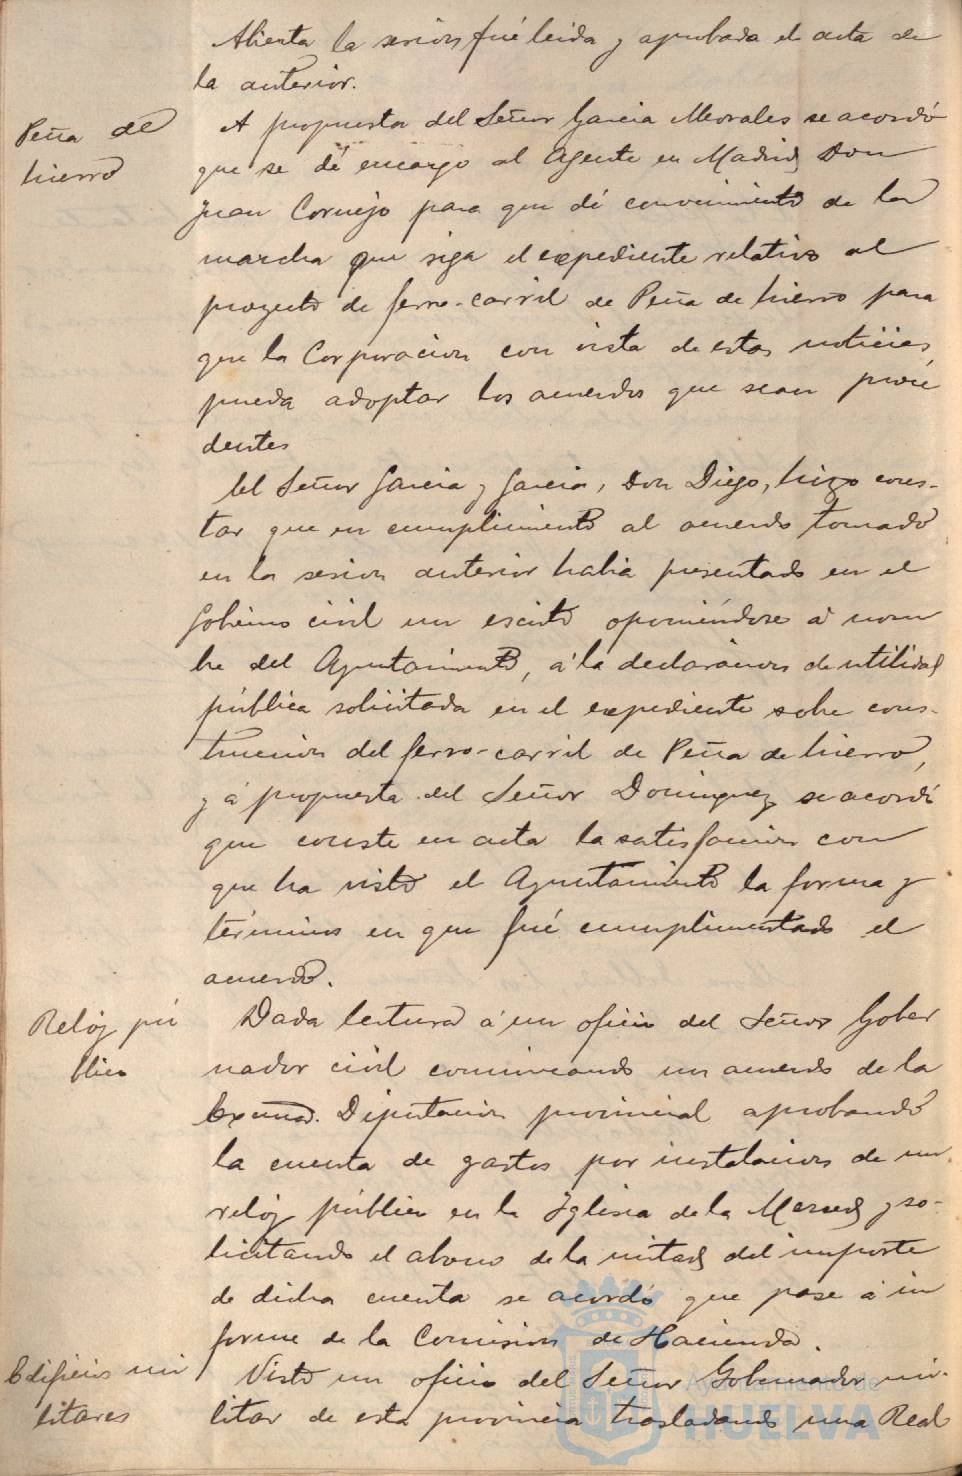 Abierta la sesion fué leida y aprobada el acta de
la anterior.
Peña de
hierro
A propuesta del Señor Garcia Morales se acordó
que se dé encargo al Agente en Madrid Don
Juan Cornejo para que dé conocimiento de la
marcha que siga el expediente relativo al
proyecto de ferro-carril de Peña de hierro para
que la Corporacion con vista de estas noticias,
pueda adoptar los acuerdos que sean proce
dentes
El Señor Garcia y Garcia, Don Diego, hizo cons-
tar que en cumplimiento al acuerdo tomado
en la sesion anterior habia presentado en el
Gobierno civil un escrito oponiéndose á nom
bre del Ayuntamiento, á la declaracion de utilidad
pública solicitada en el expediente sobre cons-
truccion del ferro-carril de Peña de hierro,
y á propuesta del Señor Dominguez se acordó
que conste en acta la satisfaccion con
que ha visto el Ayuntamiento la forma y
términos en que fué cumplimentado el
acuerdo.
Reloj pú
blico
Dada lectura á un oficio del Señor Gober
nador civil comunicando un acuerdo de la
Excma. Diputacion provincial aprobando
la cuenta de gastos por instalacion de un
reloj público en la Iglesia de la Merced y so-
licitando el abono de la mitad del importe
de dicha cuenta se acordó que pase á in
forme de la Comision de Hacienda.
Edificios mi
litares
Visto un oficio del Señor Gobernador mi-
litar de esta provincia trasladando una Real
Ayuntamiento de
HUELVA